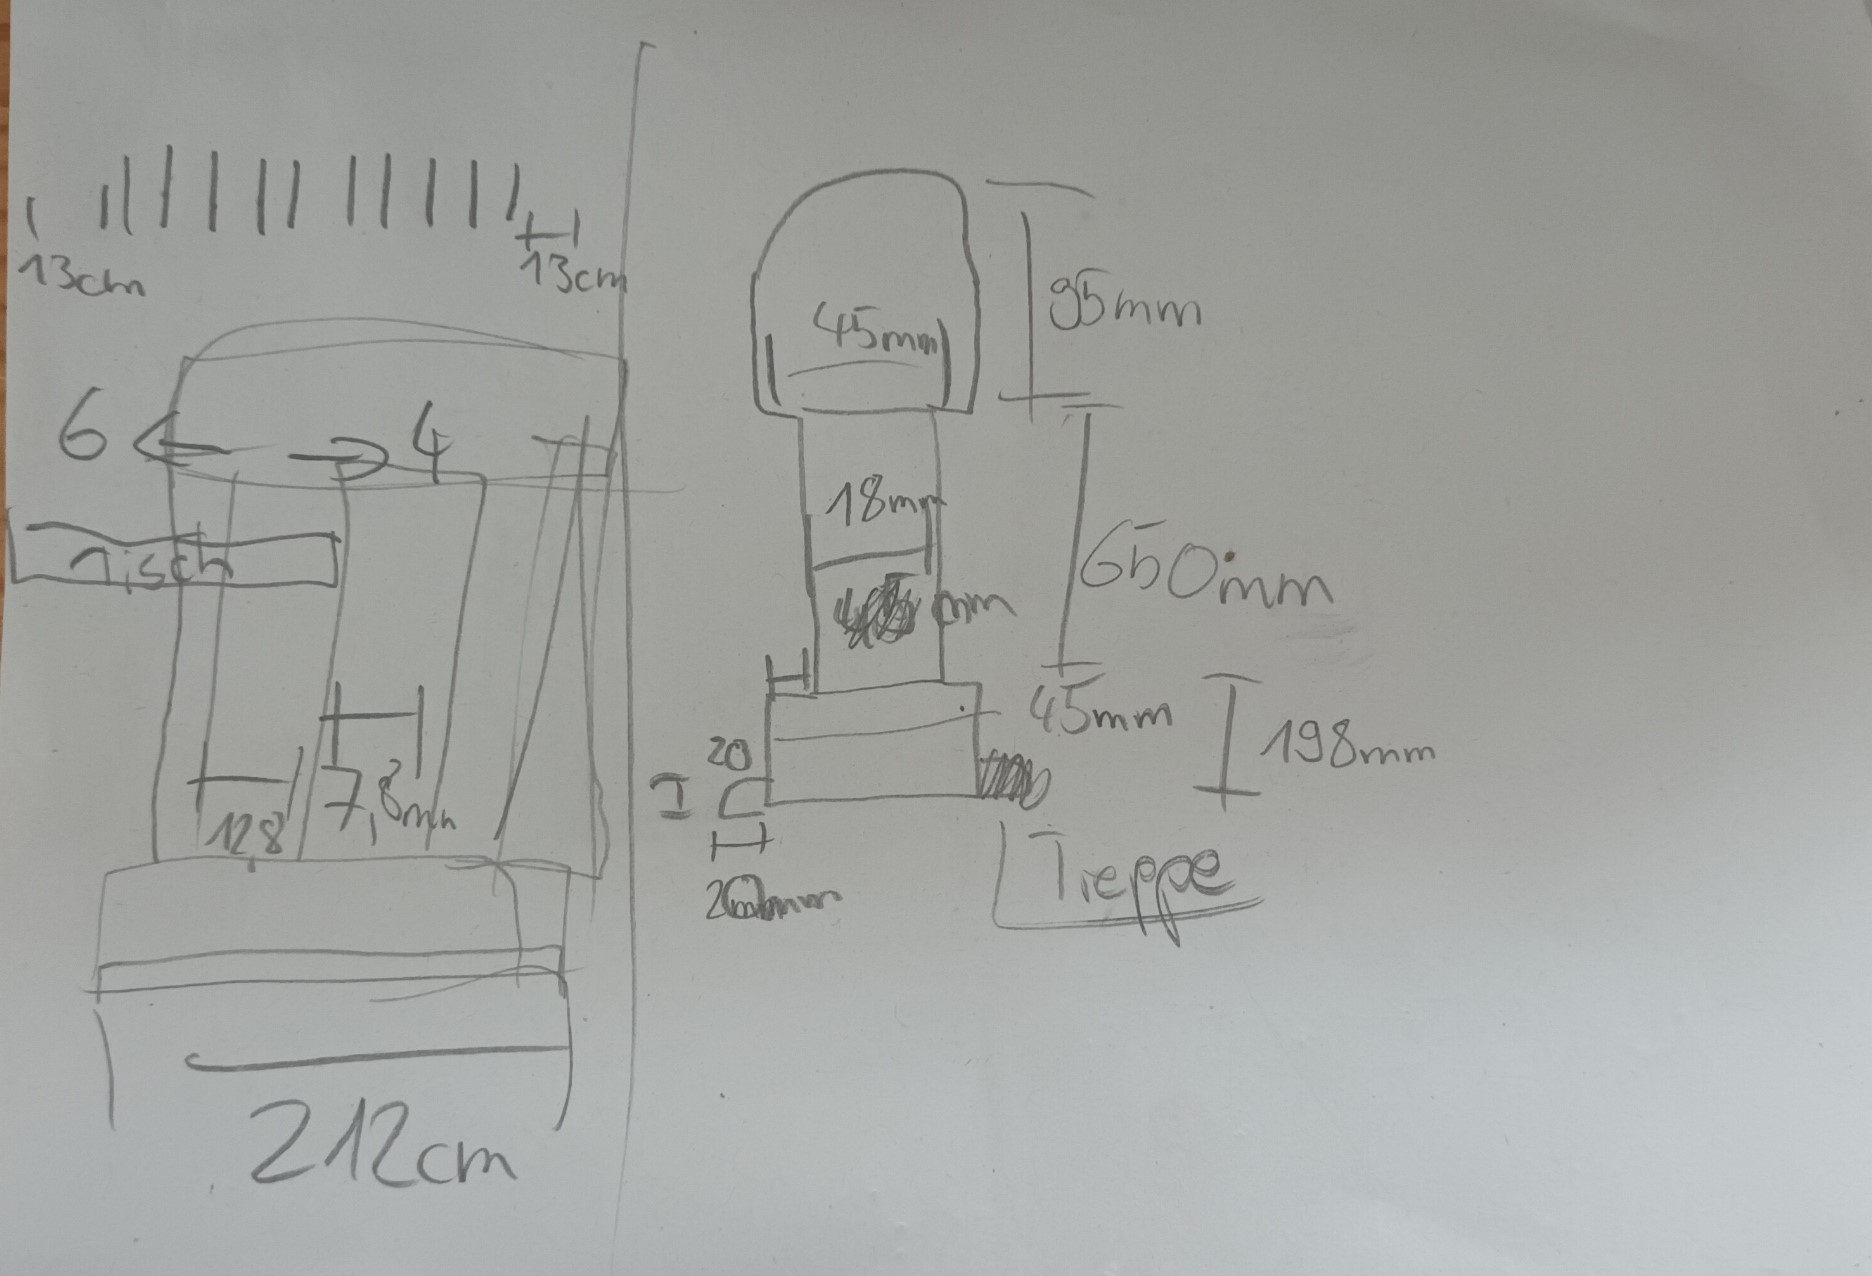 13cm
13cm
6
4
Tisch
128
7,8mm
212cm
45mm
95mm
18mm
mm
650mm
45mm
198mm
20
Treppe